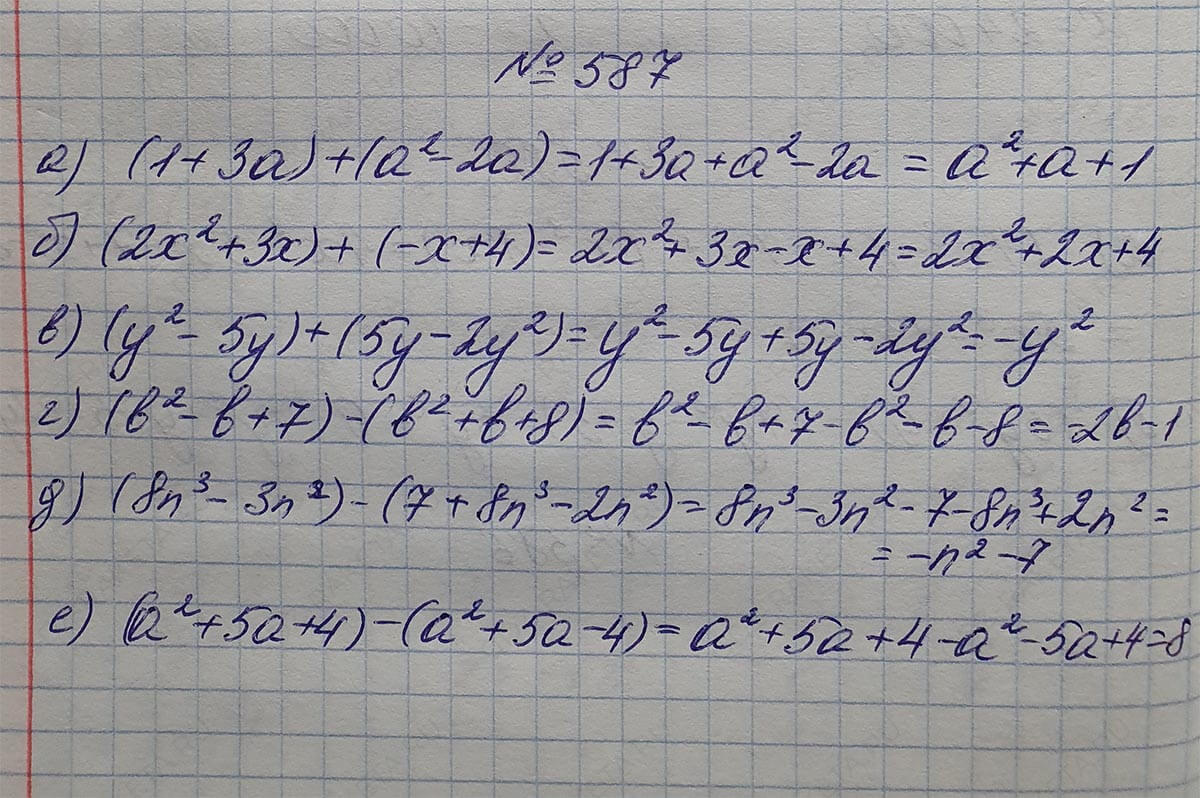 № 587
а) (1+3a)+(a²-2a)=1+3a+a²-2a = a²+a+1
б) (2x²+3x)+(-x+4)=2x²+3x-x+4=2x²+2x+4
в) (y²-5y)+(5y-2y²)=y²-5y+5y-2y²=-y²
г) (b²-b+7)-(b²+b+8)=b²-b+7-b²-b-8=-2b-1
д) (8n³-3n²)-(7+8n³-2n²)=8n³-3n²-7-8n³+2n²=
=-n²-7
е) (a²+5a+4)-(a²+5a-4)=a²+5a+4-a²-5a+4=8